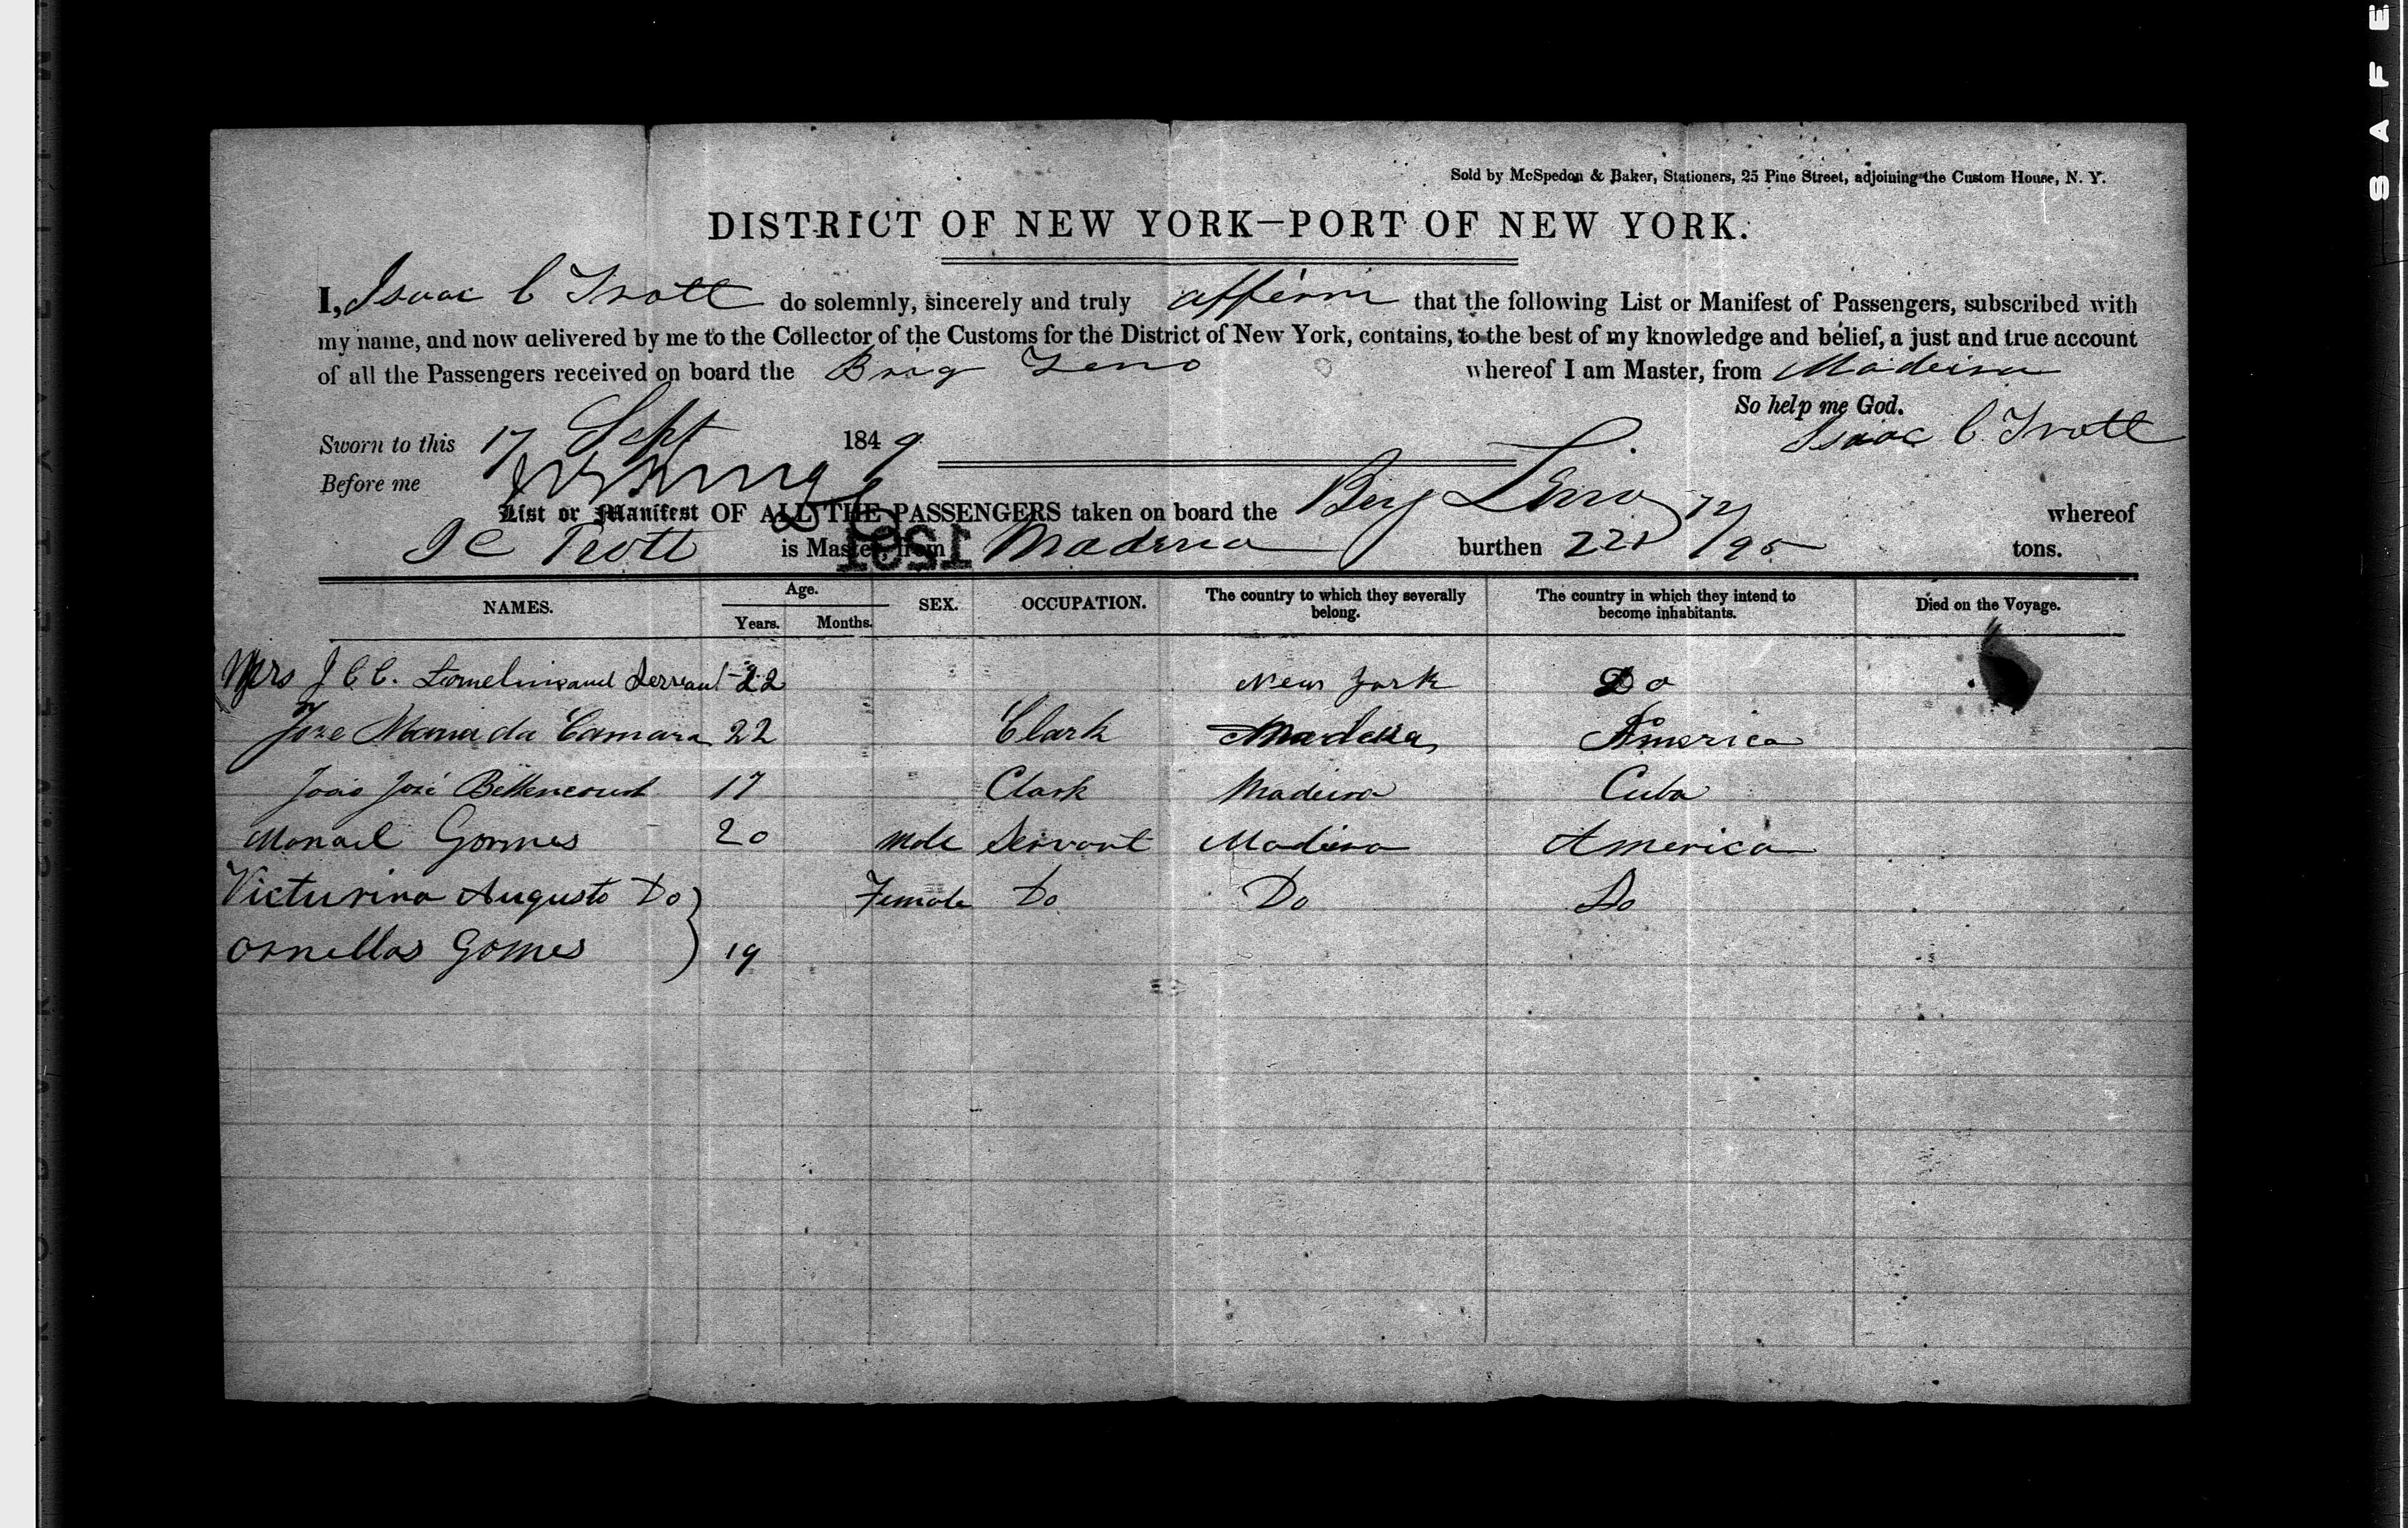 SAFE
Sold by McSpedon & Baker, Stationers, 25 Pine Street, adjoining the Custom House, N. Y.
DISTRICT OF NEW YORK—PORT OF NEW YORK.
I, Isaac C Trott do solemnly, sincerely and truly affirm that the following List or Manifest of Passengers, subscribed with
my name, and now delivered by me to the Collector of the Customs for the District of New York, contains, to the best of my knowledge and belief, a just and true account
of all the Passengers received on board the Brig Zeno whereof I am Master, from Madeira
So help me God.
Sworn to this 17 Sept 1849 Isaac C. Trott
Before me
List or Manifest OF ALL THE PASSENGERS taken on board the Zeno whereof
I C Trott is Master, from Madeira burthen 72/95 tons.
NAMES. Age. Years. Months. SEX. OCCUPATION. The country to which they severally belong. The country in which they intend to become inhabitants. Died on the Voyage.
Mrs J C C. and Servant 22 New York Do
Joze Maria da Camara 22 Clark Madeira America
João José Bettencourt 17 Clark Madeira Cuba
Manail Gomes 20 Male Servant Madiera America
Victurina Augusto Do Female Do Do Do
Ornellas Gomes 19